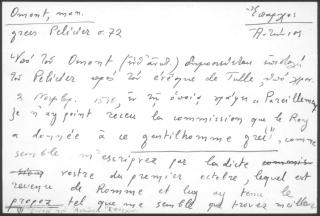 Omont, man. Ἔπαρχος
grecs Pelicier σ. 72 Ἀντώνιος
Ὑπὸ τοῦ Omont δημοσιεύεται ἐπιστολὴ
τοῦ Pelicier πρὸς τὸν ἐπίσκοπο de Tulle, ἀπό
1540, ἐν τῇ ὁποίᾳ γράφει "Pareillement
je n'ay point receu la commission que le Roy
a donnée à ce gentilhomme grec", comme
semble m'escripvez par la dicte commis-
sion vostre du premier octobre, lequel est
revenu de Romme et luy ay tenu le
propoz tel que me semble qui trovez meilleur